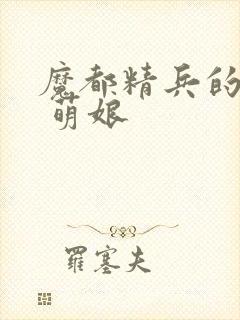 魔都精兵的
萌娘
羅塞夫